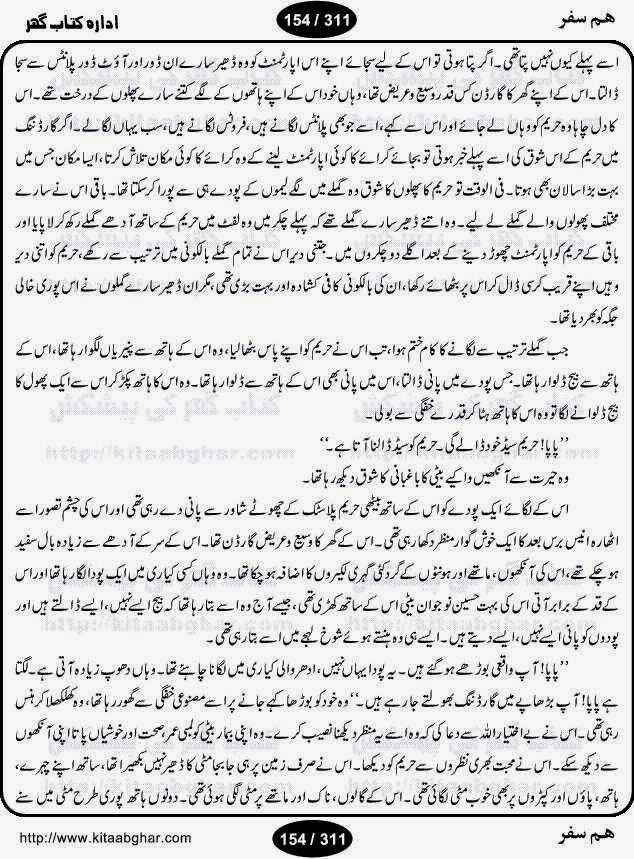 هم سفر
154 / 311
اداره کتاب گھر
اسے پہلے کیوں نہیں پتا تھی۔ اگر پتا ہوتی تو اس کے لیے سجائے اپنے اس اپارٹمنٹ کو وہ ڈھیر سارے ان ڈور اور آؤٹ ڈور پلانٹس سے سجا
ڈالتا۔ اس کے اپنے گھر کا گارڈن کس قدر وسیع و عریض تھا، وہاں خود اس کے اپنے ہاتھوں کے لگے کتنے سارے پھلوں کے درخت تھے۔ اس
کا دل چاہا وہ حریم کو وہاں لے جائے اور اس سے کہے، اسے جو بھی پلانٹس لگانے ہیں، فروٹس لگانے ہیں، سب یہاں لگا لے۔ اگر گارڈننگ
میں حریم کے اس شوق کی اسے پہلے خبر ہوتی تو بجائے کرائے کا کوئی اپارٹمنٹ لینے کے وہ کرائے کا کوئی مکان تلاش کرتا، ایسا مکان جس میں
بہت بڑا سا لان بھی ہوتا۔ فی الوقت تو حریم کا پھلوں کا شوق وہ گملے میں لگے لیموں کے پودے ہی سے پورا کر سکتا تھا۔ باقی اس نے سارے
مختلف پھولوں والے گملے لے لیے۔ وہ اتنے ڈھیر سارے گملے تھے کہ پہلے چکر میں وہ لفٹ میں حریم کے ساتھ آدھے گملے رکھ کر لا پایا اور
باقی کے حریم کو اپارٹمنٹ چھوڑ دینے کے بعد اگلے دو چکروں میں۔ جتنی دیر اس نے تمام گملے بالکونی میں ترتیب سے رکھے، حریم کو اتنی دیر
وہیں اپنے قریب کرسی ڈال کر اس پر بٹھائے رکھا، ان کی بالکونی کافی کشادہ اور بہت بڑی تھی، مگر ان ڈھیر سارے گملوں نے اس پوری خالی
جگہ کو بھر دیا تھا۔
جب گملے ترتیب سے لگانے کا کام ختم ہوا، تب اس نے حریم کو اپنے پاس بٹھا لیا، وہ اس کے ہاتھ سے پنیریاں لگوا رہا تھا، اس کے
ہاتھ سے بیج ڈلوا رہا تھا۔ جس پودے میں پانی ڈالتا، اس میں پانی بھی اس کے ہاتھ سے ڈلوا رہا تھا۔ وہ اس کا ہاتھ پکڑ کر اس سے ایک پھول کا
بیج ڈلوانے لگا تو وہ اس کا ہاتھ ہٹا کر قدرے خفگی سے بولی۔
’’پاپا! حریم سیڈ خود ڈالے گی۔ حریم کو سیڈ ڈالنا آتا ہے۔‘‘
وہ حیرت سے آنکھیں وا کیے بیٹی کا باغبانی کا شوق دیکھ رہا تھا۔
اس کے لگائے ایک پودے کو اس کے ساتھ بیٹھی حریم پلاسٹک کے چھوٹے شاور سے پانی دے رہی تھی اور اس کی چشم تصور اسے
اٹھارہ انیس برس بعد کا ایک خوش گوار منظر دکھا رہی تھی۔ اس کے گھر کا وسیع و عریض گارڈن تھا۔ اس کے سر کے آدھے سے زیادہ بال سفید
ہو چکے تھے، اس کی آنکھوں، ماتھے اور ہونٹوں کے گرد کئی گہری لکیروں کا اضافہ ہو چکا تھا۔ وہ وہاں کسی کیاری میں ایک پودا لگا رہا تھا اور اس
کے قد کے برابر آتی اس کی بہت حسین نوجوان بیٹی اس کے ساتھ کھڑی تھی، جیسے آج وہ اسے بتا رہا تھا کہ بیج ایسے نہیں، ایسے ڈالتے ہیں اور
پودوں کو پانی ایسے نہیں، ایسے دیتے ہیں۔ ایسے ہی وہ ہنستے ہوئے شوخ لہجے میں اسے بتا رہی تھی۔
’’پاپا! آپ واقعی بوڑھے ہو گئے ہیں۔ یہ پودا یہاں نہیں، ادھر والی کیاری میں لگانا چاہیے تھا۔ وہاں دھوپ زیادہ آتی ہے۔ لگتا
ہے پاپا! آپ بڑھاپے میں گارڈننگ بھولتے جا رہے ہیں۔‘‘ وہ خود کو بوڑھا کہے جانے پر اسے مصنوعی خفگی سے گھور رہا تھا، وہ کھلکھلا کر ہنس
رہی تھی۔ اس نے بے اختیار اللہ سے دعا کی کہ وہ اسے یہ منظر دیکھنا نصیب کرے۔ وہ اپنی بیمار بیٹی کو لمبی عمر، صحت اور خوشیاں پاتا اپنی آنکھوں
سے دیکھ سکے۔ اس نے محبت بھری نظروں سے حریم کو دیکھا۔ اس نے صرف زمین پر ہی جا بجا مٹی کا ڈھیر نہیں بکھیرا تھا، ساتھ اپنے چہرے،
ہاتھ، پاؤں اور کپڑوں پر بھی خوب مٹی لگائی تھی۔ اس کے گالوں، ناک اور ماتھے پر مٹی لگی ہوئی تھی۔ دونوں ہاتھ پوری طرح مٹی میں سنے
http://www.kitaabghar.com
154 / 311
هم سفر